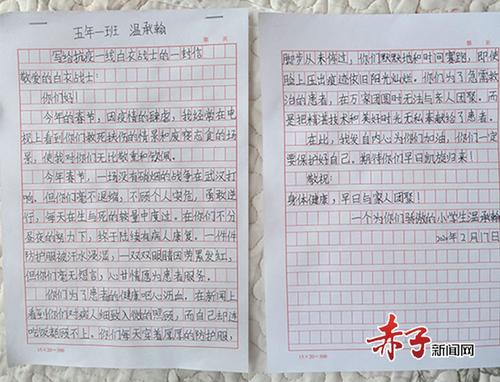 五年一班 温承翰
第 页
写给抗疫一线白衣战士的一封信
敬爱的白衣战士:
你们好!
今年的春节,因疫情的肆虐,我经常在电
视上看到你们救死扶伤的情景和废寝忘食的场
景,使我对你们无比敬重和钦佩。
今年春节,一场没有硝烟的战争在武汉打
响。但你们毫不退缩,不顾个人安危,勇敢逆
行,每天在生与死的较量中度过。在你们不分
昼夜的努力下,终于陆续有病人康复。一件件
防护服被汗水浸湿,一双双眼睛因劳累发红,
但你们毫无怨言,心甘情愿为患者服务。
你们为了患者的健康呕心沥血,在新闻上
看到你们对病人细致入微的照顾,而自己却连
吃饭都顾不上。你们每天穿着厚厚的防护服,
15×20=300
第 页
脚步从未停过,你们默默地和时间赛跑,即使
脸上压出痕迹依旧阳光灿烂。你们为了急需救
治的患者,在万家团圆时无法与亲人团聚。而
是把精湛技术和美好时光无私奉献给了患者。
在此,我发自内心为你们加油,你们一定
要保护好自己。期待你们早日凯旋归来!
敬祝:
身体健康,早日与家人团聚!
一个为你们骄傲的小学生温承翰
2020年2月17日
15×20=300
赤子新闻网